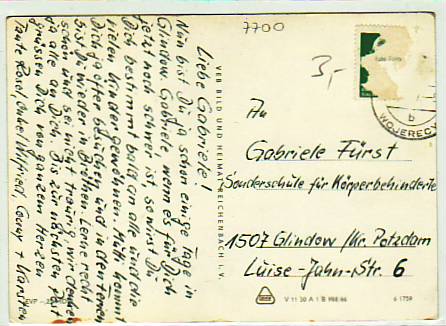 7700
3,-
Liebe Gabriele!
Nun bist Du ja schon einige Tage in
Glindow. Gabriele, wenn es für Dich
jetzt noch schwer ist, so wirst Du
Dich bestimmt bald an alle und die
vielen Kinder gewöhnen. Mutti kommt
Dich ja öfter besuchen und in den Ferien
bist Du wieder in Lerne recht
schön und sei nicht traurig, wir denken
ja alle an Dich. Bis zur nächsten Post
grüssen Dich von ganzem Herzen
Tante Rosel, Onkel Wilfried, Conny + Karsten
VEB BILD UND HEIMAT REICHENBACH i. V.
An
Gabriele Fürst
Sonderschule für Körperbehinderte
1507 Glindow /Kr. Potsdam
Luise-Jahn-Str. 6
b
WOJEREC
EVP
V 11 30 A 1 B 988/66
6 1759